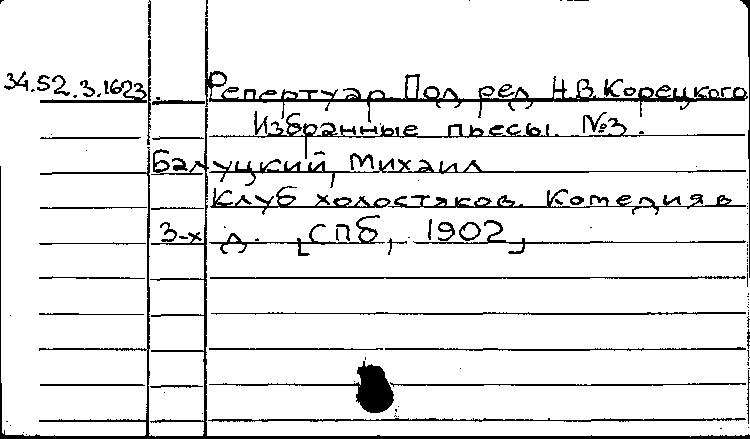 34.52.3.1623. Репертуар Под ред. Н.В. Корецкого
Избранные пьесы. №3.
Балуцкий, Михаил
Клуб холостяков. Комедия в
3-х д. [СПб, 1902]